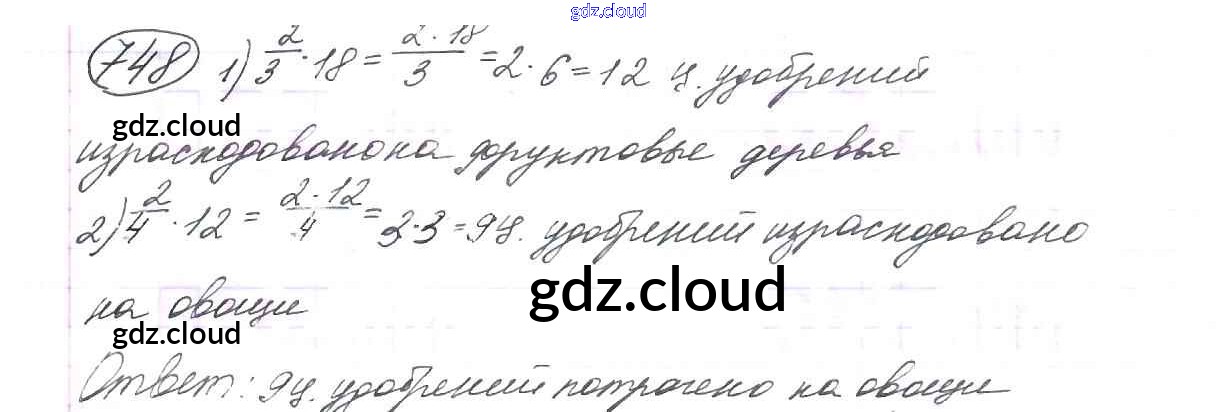 gdz.cloud
748 1) 2/3 · 18 = 2 · 18/3 = 2 · 6 = 12 ц. удобрений
gdz.cloud
израсходовано на фруктовые деревья
2) 2/4 · 12 = 2 · 12/4 = 3 · 3 = 9 ц. удобрений израсходовано
gdz.cloud
на овощи
gdz.cloud
Ответ: 9 ц. удобрений потрачено на овощи